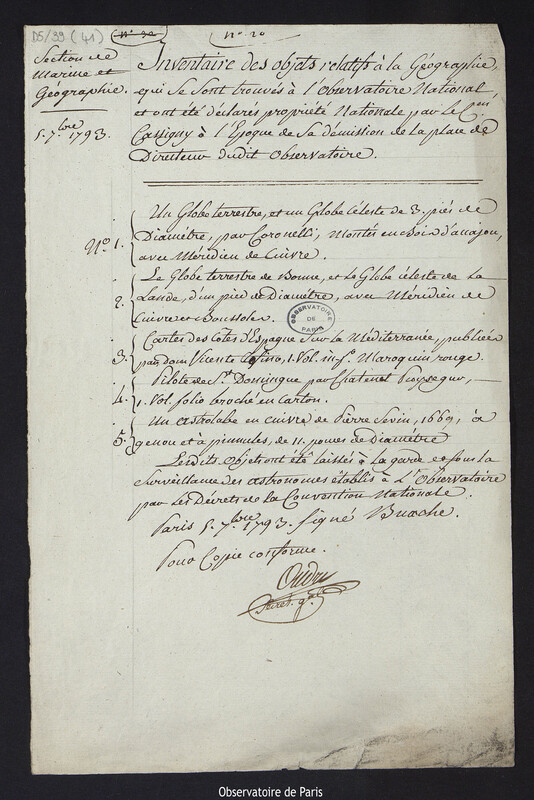 D5/39 (41)
N.º 20
Section de
Marine et
Géographie.
5. 7.bre 1793.
Inventaire des objets relatifs à la Géographie,
qui se sont trouvés à l'Observatoire National,
et ont été déclarés propriété Nationale par le C.en
Cassigny à l'Epoque de sa démission de la place de
Directeur dudit Observatoire.
N.º 1. Un Globe terrestre, et un Globe Céleste de 3. piés de
Diamètre, par Coronelli, montés en bois d'acajou,
avec Méridien de Cuivre.
2. Le Globe terrestre de Bonne, et le Globe céleste de La
Lande, d'un pied de Diamétre, avec Méridien de
Cuivre et Boussoles.
OBSERVATOIRE DE PARIS
3. Cartes des Côtes d'Espagne sur la Méditerranée, publiées
par dom Vicente Tofino, 1. Vol. in-fº. Maroquin rouge.
4. Pilote de S.t Domingue par Chatenet Puysegur, —
1. Vol. folio broché en carton.
5. Un astrolabe en cuivre de Pierre Sevin, 1669, à
genou et à pinnules, de 11. pouces de Diamétre
Lesdits objets ont été laissés à la garde et sous la
surveillance des astronomes établis à L'Observatoire
par les Décrets de la Convention Nationale.
Paris 5. 7.bre 1793. signé Buache.
Pour Copie conforme.
Oudry
Secret. g.al
Observatoire de Paris